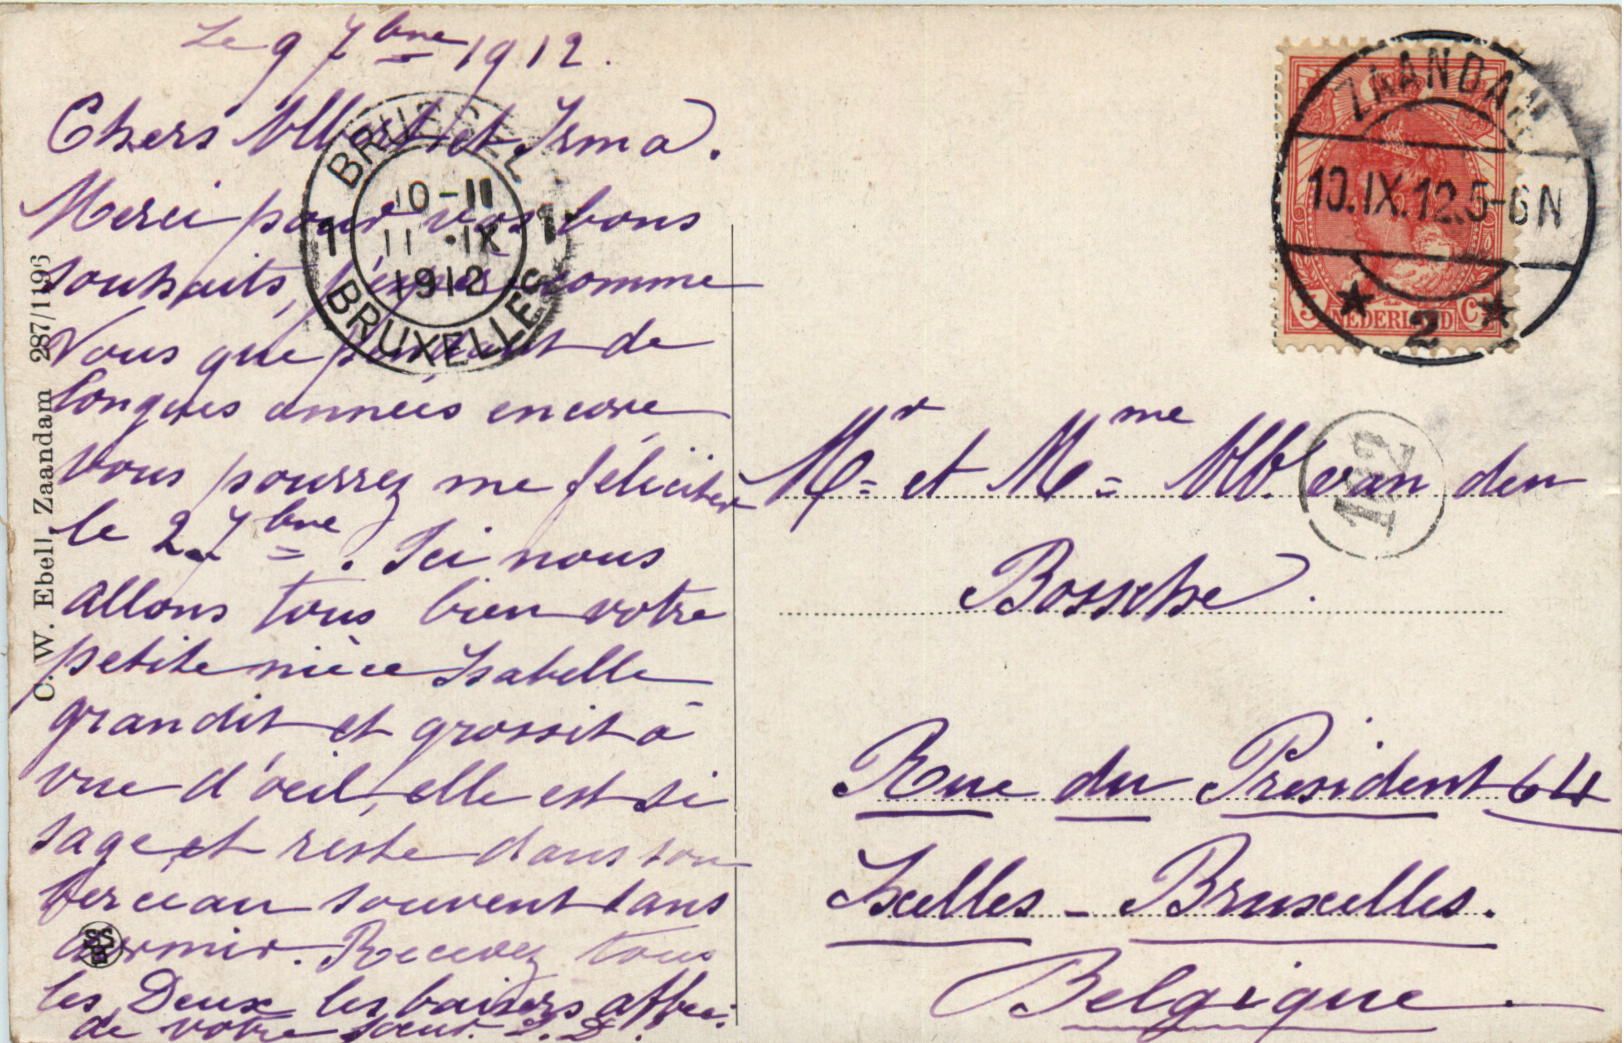 Le 9 7bre 1912.
Chers Albert et Irma.
Merci pour vos bons
souhaits, j'espère comme
Vous que pendant de
longues années encore
vous pourrez me féliciter
le 2 7bre. Ici nous
allons tous bien votre
petite nièce Isabelle
grandit et grossit à
vue d'oeil, elle est si
sage et reste dans son
berceau souvent sans
dormir. Recevez tous
les Deux les baisers affec:
de votre soeur
C. W. Ebell, Zaandam 287/1196
BRUSSEL
10-11
1 11 .IX 1
1912
BRUXELLES
ZAANDAM
10.IX.12.5-6N
2
NEDERLAND
132
Mr et Mme Alb. van den
Bossche.
Rue du Président 64
Ixelles - Bruxelles.
Belgique.